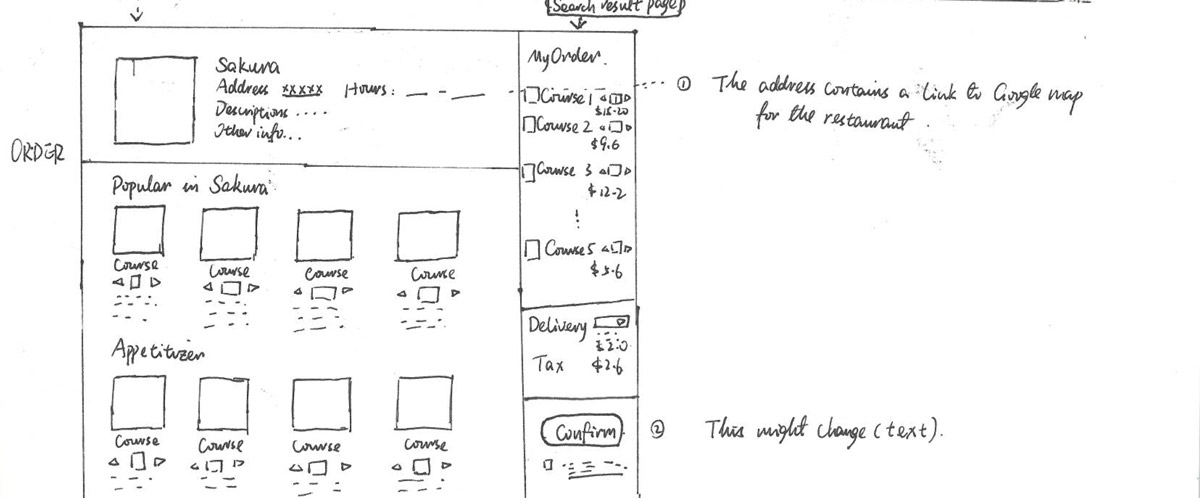 Search result page
ORDER
Sakura
Address xxxxx Hours:
Descriptions ....
Other info...
Popular in Sakura
Course Course Course Course
Appetitizer
Course Course Course Course
My Order.
Course 1
$18.20
Course 2
$9.6
Course 3
$12.2
Course 5
$5.6
Delivery
$2.0
Tax $2.6
Confirm
① The address contains a link to Google map
for the restaurant.
② This might change (text).